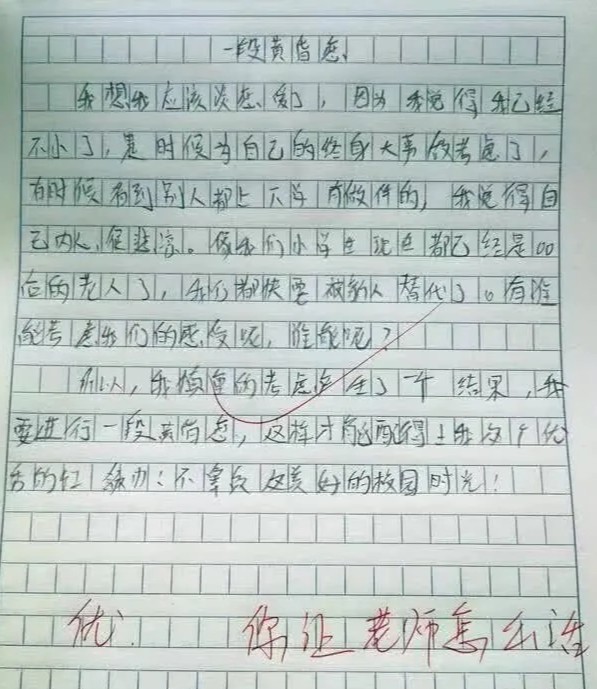 一段黄昏恋
我想我应该谈恋爱了，因为我觉得我已经
不小了，是时候为自己的终身大事做考虑了，
有时候看到别人都上下学有做伴的，我觉得自
己内人很悲凉。像我们小学生现在都已经是00
后的老人了，我们都快要被新人替代了。有谁
能考虑我们的感受呢，谁能呢？
所以人，我慎重的考虑产生了一个结果，我
要进行一段黄昏恋，这样才能配得上我这个优
秀的红领巾：不辜负这美好的校园时光！
优 你让老师怎么活